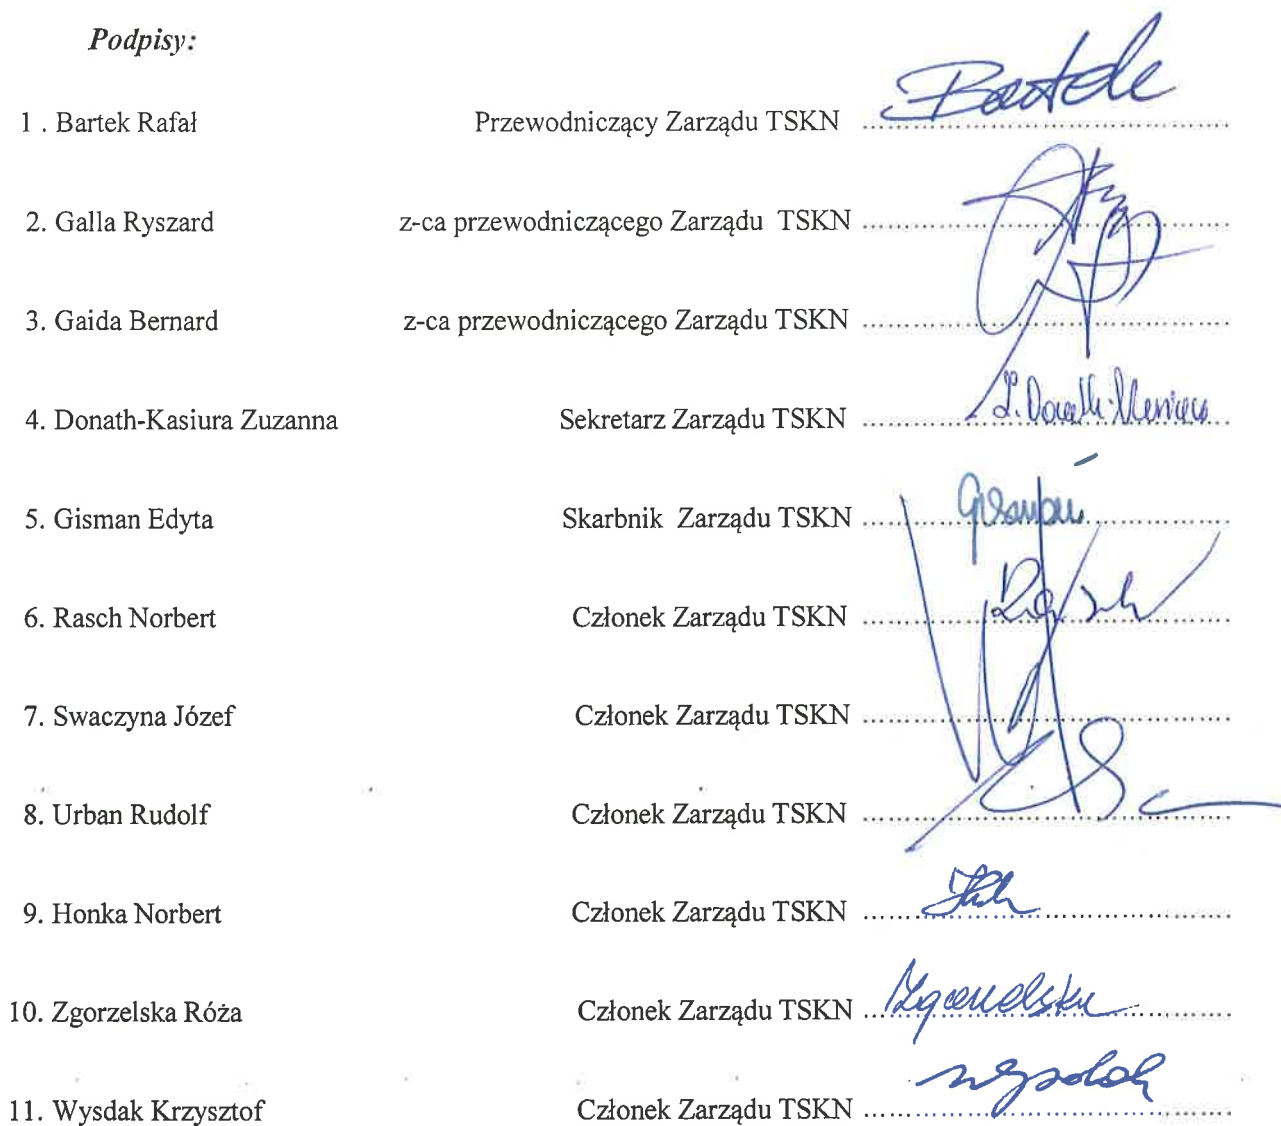 Podpisy:
1 . Bartek Rafał Przewodniczący Zarządu TSKN Bartek
2. Galla Ryszard z-ca przewodniczącego Zarządu TSKN
3. Gaida Bernard z-ca przewodniczącego Zarządu TSKN
4. Donath-Kasiura Zuzanna Sekretarz Zarządu TSKN
5. Gisman Edyta Skarbnik Zarządu TSKN
6. Rasch Norbert Członek Zarządu TSKN
7. Swaczyna Józef Członek Zarządu TSKN
8. Urban Rudolf Członek Zarządu TSKN
9. Honka Norbert Członek Zarządu TSKN
10. Zgorzelska Róża Członek Zarządu TSKN
11. Wysdak Krzysztof Członek Zarządu TSKN